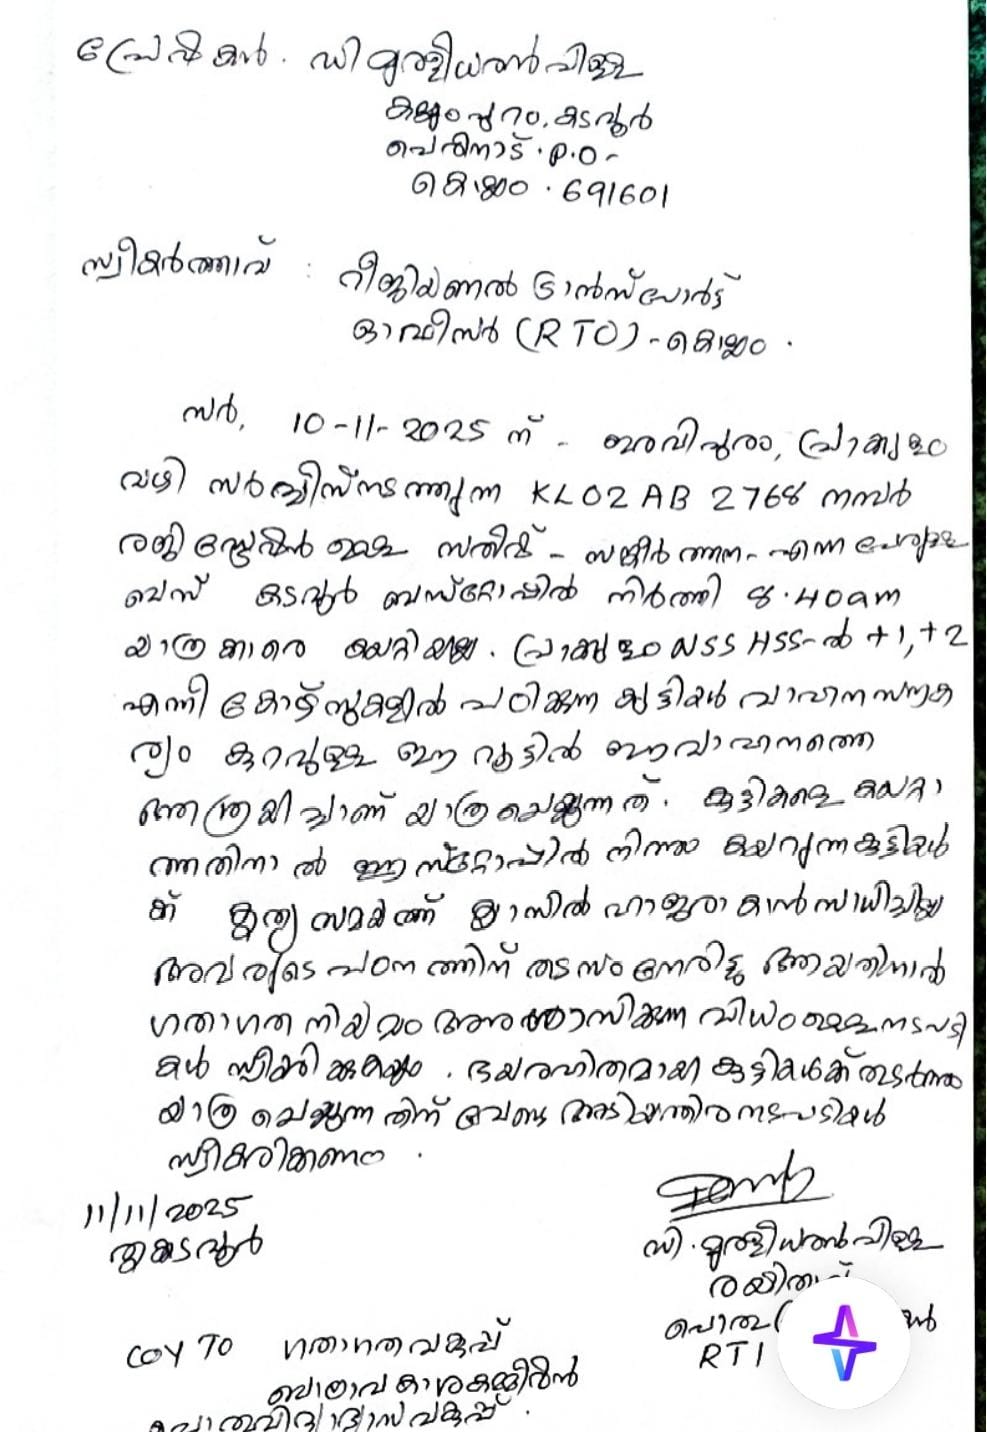 പ്രേഷകൻ. ഡി മുരളീധരൻപിള്ള
കടവൂർ
പെരിനാട്. P.O-
കൊല്ലം. 691601
സ്വീകർത്താവ് : റീജിയണൽ ട്രാൻസ്പോർട്ട്
ഓഫീസർ (RTO) - കൊല്ലം.
സർ, 10-11-2025 ന് - ഇരവിപുരം, പ്രാക്കുളം
വഴി സർവ്വീസ് നടത്തുന്ന KL02 AB 2768 നമ്പർ
രജിസ്ട്രേഷൻ ഉള്ള സതീഷ് - എന്ന പേരുള്ള
ബസ് കടവൂർ ബസ്റ്റോപ്പിൽ നിർത്തി 8.40am
യാത്രകാരെ കയറ്റിയില്ല. പ്രാക്കുളം NSS HSS-ൽ +1, +2
എന്നീ കോഴ്സുകളിൽ പഠിക്കുന്ന കുട്ടികൾ വാഹന സൗക
ര്യം കുറവുള്ള ഈ റൂട്ടിൽ ഈ വാഹനത്തെ
ആശ്രയിച്ചാണ് യാത്ര ചെയ്യുന്നത്. കുട്ടികളെ കയറ്റാ
ത്തതിനാൽ ഈ സ്റ്റോപ്പിൽ നിന്നും കയറുന്ന കുട്ടികൾ
ക്ക് കൃത്യ സമയത്ത് ക്ലാസിൽ ഹാജരാകാൻ സാധിച്ചില്ല
അവരുടെ പഠനത്തിന് തടസം നേരിട്ടു ആയതിനാൽ
ഗതാഗത നിയമം അനുശാസിക്കുന്ന വിധം ഉള്ള നടപടി
കൾ സ്വീകരിക്കുകയും. ഭയരഹിതമായി കുട്ടികൾക്ക് തുടർന്നും
യാത്ര ചെയ്യുന്നതിന് വേണ്ട അടിയന്തിര നടപടികൾ
സ്വീകരിക്കണം.
11/11/2025
തൃക്കടവൂർ
സി. മുരളീധരൻപിള്ള
RTI
COY TO ഗതാഗത വകുപ്പ്
ബാലാവകാശ കമ്മീഷൻ
പൊതുവിദ്യാഭ്യാസ വകുപ്പ്.